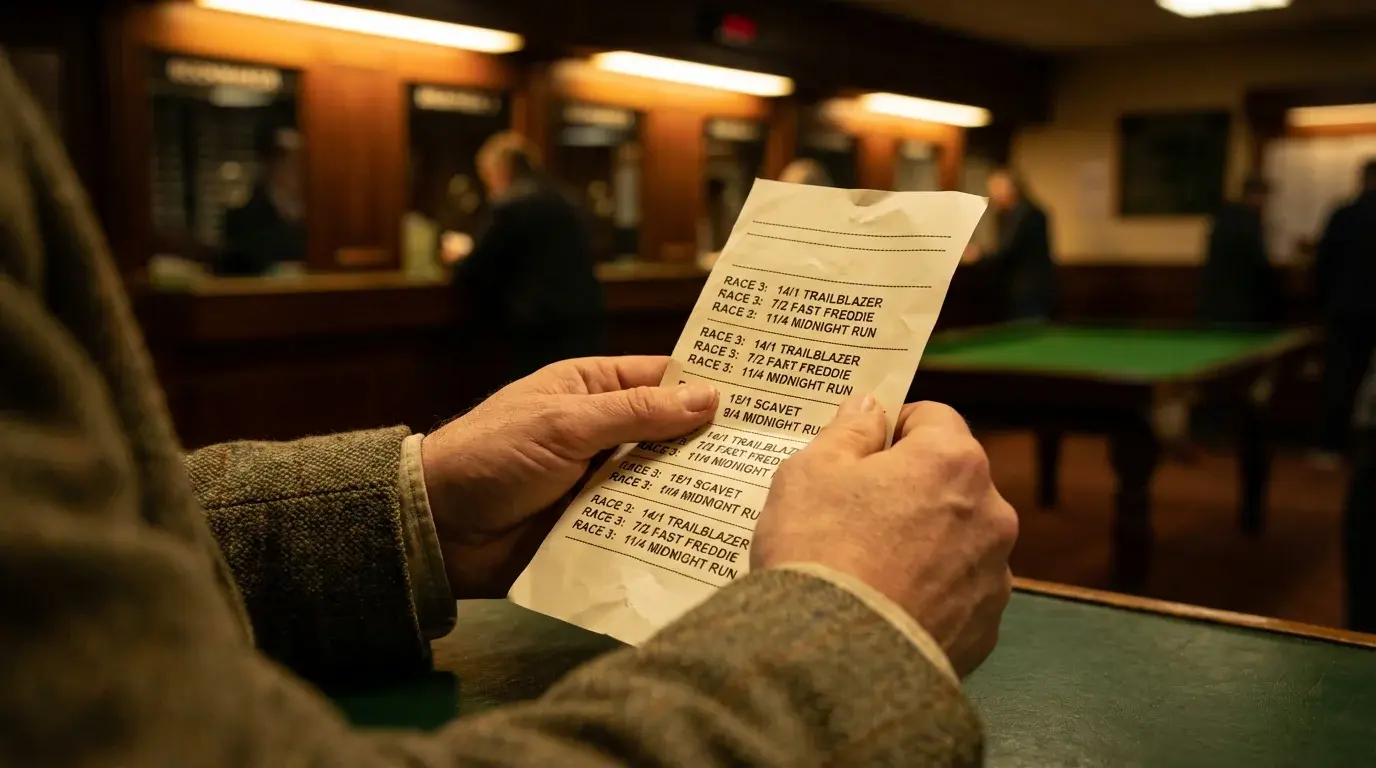 RACE 3: 14/1 TRAILBLAZER
RACE 3: 7/2 FAST FREDDIE
RACE 2: 11/4 MIDNIGHT RUN
RACE 3: 14/1 TRAILBLAZER
RACE 3: 7/2 FART FREDDIE
RACE 3: 11/4 MIDNIGHT RUN
18/1 SCAVET
9/4 MIDNIGHT RU
14/1 TRAILBLAZ
RACE 3: 7/2 FAST FREDD
RACE 3: 11/4 MIDNIGHT
RACE 3: 18/1 SCAVET
RACE 3: 11/4 MIDNIGHT RU
RACE 2: 14/1 TRAILBLAZER
RACE 3: 7/2 FAST FREDDIE
RACE 3: 11/4 MIDNIGHT RUN